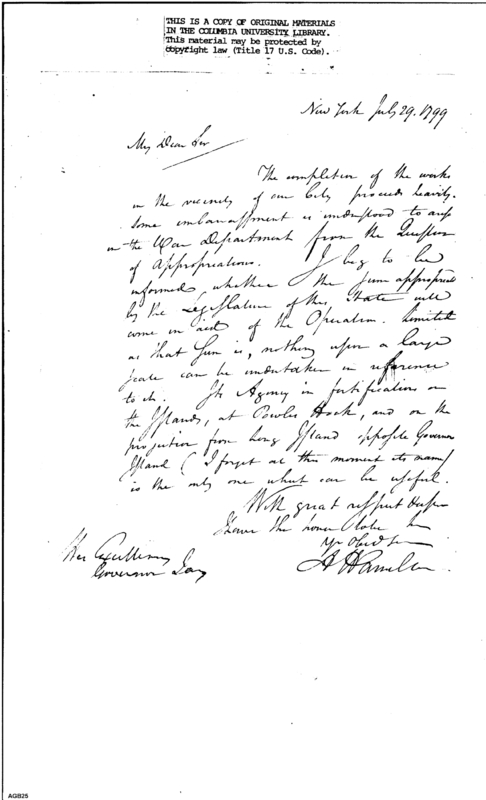 THIS IS A COPY OF ORIGINAL MATERIALS
IN THE COLUMBIA UNIVERSITY LIBRARY.
This material may be protected by
copyright law (Title 17 U.S. Code).
New York July 29. 1799
My Dear Sir
The completion of the works
in the vicinity of our City proceeds heavily.
Some embarrassment is understood to arise
in the War Department from the Question
of Appropriations. I beg to be
informed, whether the sum appropriated
by the Legislature of this State will
come in aid of the Operation. Limited
as that Sum is, nothing upon a large
scale can be undertaken in reference
to it. Its Agency in fortifications on
the Islands, at Powles Hook, and on the
projection from Long Island opposite Governor
Island (I forget at this moment its name)
is the only one what can be useful.
With great respect
I have the honor to be
Yr Obed Ser
A Hamilton
His Excellency
Governor Jay
AGB25